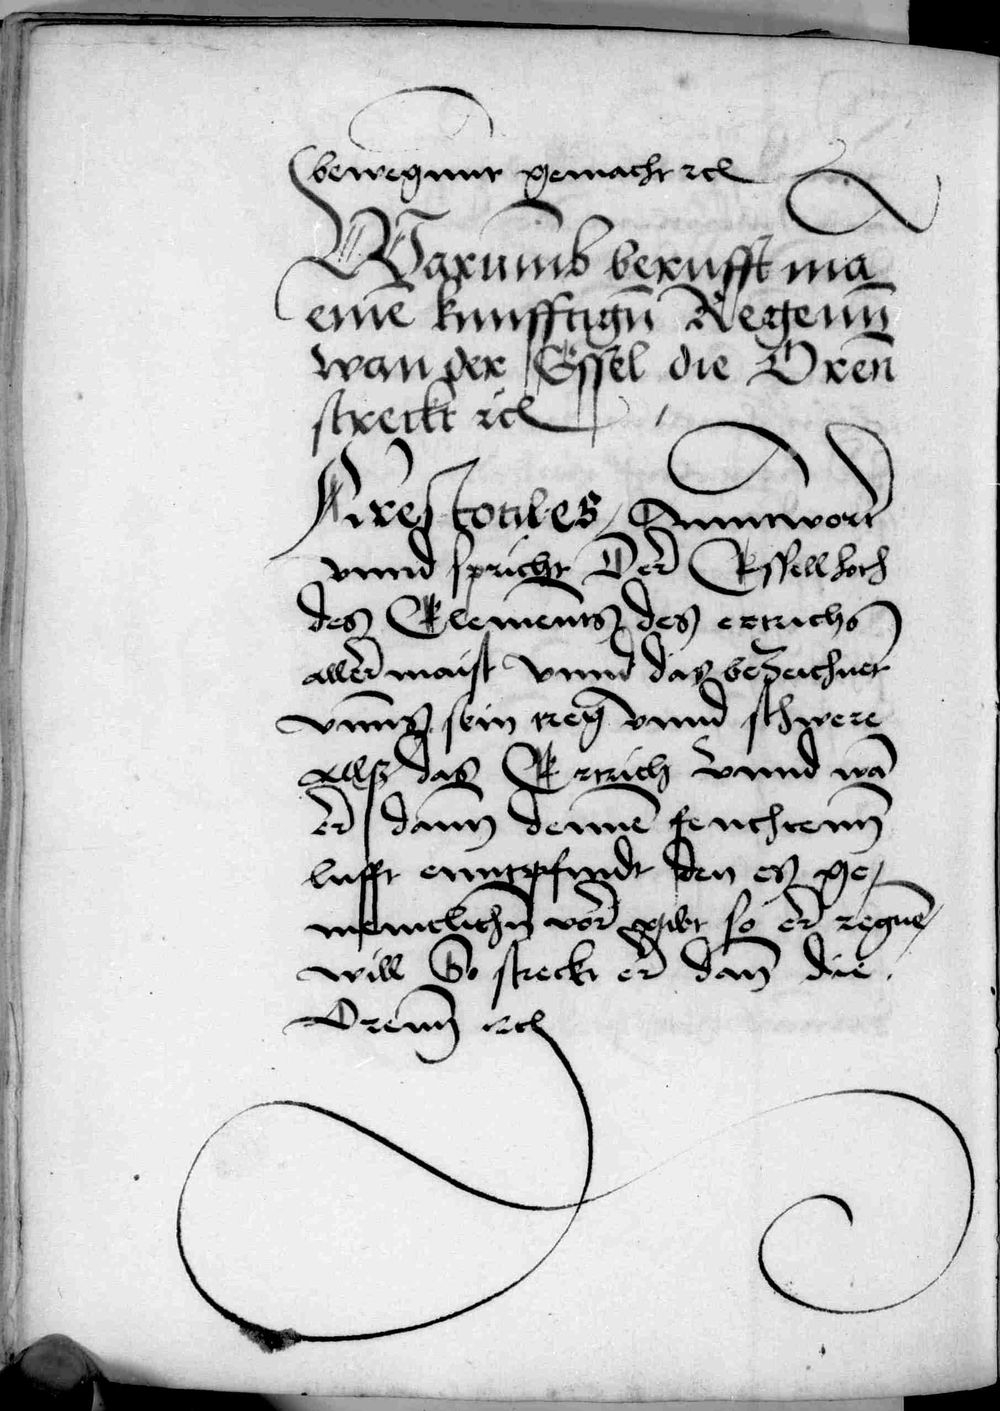 bewegunt gemacht rcl
Warumb berufft mā
eine kunfftigñ Regenñ
wan der Essel die Oren
streckt rcl
Arestotiles Anntwort
vnnd spricht Der Essell hoth
des Elements des ertrichs
aller maist vnnd das bezeichnet
vnns sein treg vnnd schwere
alls das Ertrich vnnd wā
er dann denne feuchtenn
lufft enntpfindt den es ge,
mentlichn vor gibt so er regne
will So streckt er dan die
Orenn rcl